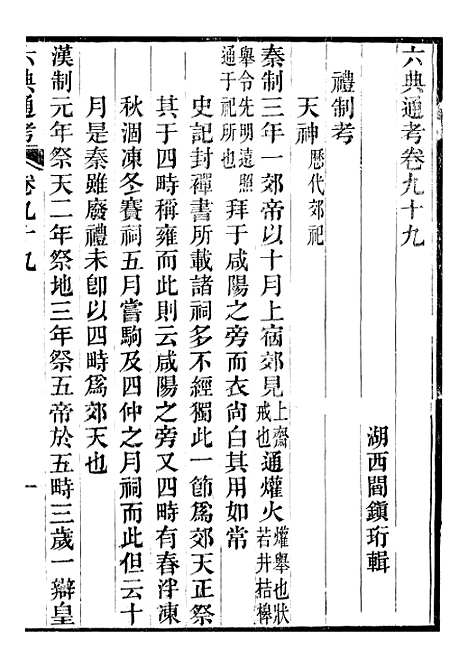 六典通考卷九十九
湖西閻鎮珩輯
禮制考
天神歷代郊祀
秦制三年一郊帝以十月上宿郊見上齋戒也通爟火爟舉也狀若井桔槹
舉令先明遠照通于祀所也拜于咸陽之旁而衣尚白其用如常
史記封禪書所載諸祠多不經獨此一節爲郊天正祭
其于四時稱雍而此則云咸陽之旁又四時有春泮凍
秋涸凍冬賽祠五月嘗駒及四仲之月祠而此但云十
月是秦雖廢禮未卽以四時爲郊天也
漢制元年祭天二年祭地三年祭五帝於五時三歲一辯皇
六典通考
卷九十九
一